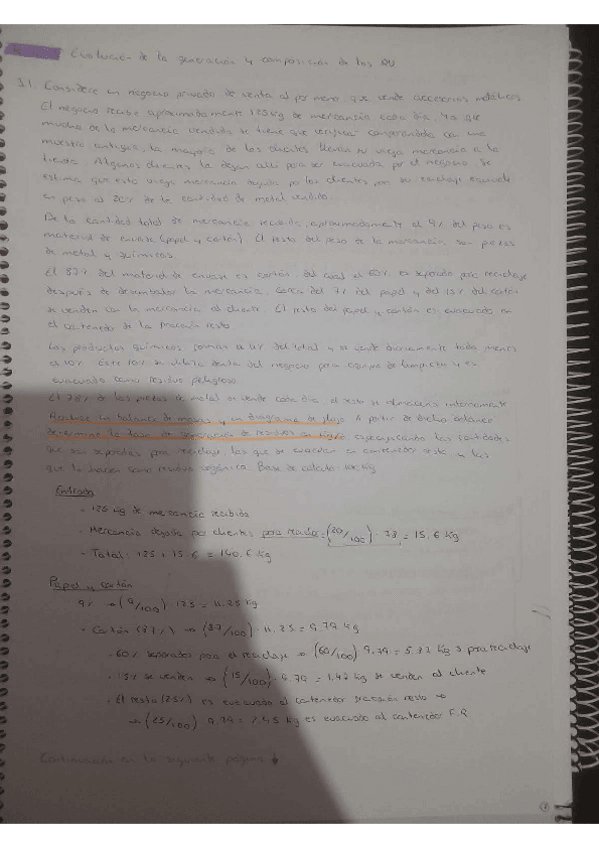 Evolución de la generación y composición de los RU
3.1. Considere un negocio privado de venta al por menor que vende accesorios metálicos
El negocio recibe aproximadamente 125 kg de mercancía cada día, ya que
mucha de la mercancía vendida se tiene que verificar comparándola con una
muestra antigua, la mayoría de los clientes llevan su vieja mercancía a la
tienda. Algunos clientes la dejan allí para ser evacuada por el negocio. Se
estima que esta vieja mercancía dejada por los clientes, en su embalaje equivale
en peso al 20% de la cantidad de metal vendido.
De la cantidad total de mercancía recibida, aproximadamente el 9% del peso es
material de envase (papel y cartón). El resto del peso de la mercancía, son piezas
de metal y químicos.
El 87% del material de envase es cartón, del cual el 60% es separado para reciclaje
después de desembalar la mercancía. Cerca del 7% del papel y del 15% del cartón
se venden con la mercancía al cliente. El resto del papel y cartón es evacuado en
el contenedor de la fracción resto.
Los productos químicos forman a 4% del total y se vende diariamente todo menos
el 10%. Este 10% se utiliza dentro del negocio para equipo de limpieza y es
evacuado como residuo peligroso
El 78% de las piezas de metal se vende cada día, el resto se almacena internamente
Realice un balance de masas y un diagrama de flujo. A partir de dicho balance
determine la tasa de generación de residuos en kg/d especificando las cantidades
que son separadas para reciclaje, las que se evacúan en contenedor resto y las
que lo hacen como residuo orgánico. Base de cálculo: kg
Entrada
- 125 kg de mercancía recibida
- Mercancía dejada por clientes para reciclar = (20/100) · 78 = 15.6 kg
- Total: 125 + 15.6 = 140.6 kg
Papel y cartón
9% → (9/100) · 125 = 11.25 kg
- Cartón (87%) → (87/100) · 11.25 = 9.79 kg
· 60% separados para el reciclaje → (60/100) 9.79 = 5.87 kg → para reciclaje
· 15% se venden → (15/100) · 9.79 = 1.47 kg se venden al cliente
· El resto (25%) es evacuado al contenedor fracción resto →
→ (25/100) 9.79 = 2.45 kg es evacuado al contenedor F.R
Continuación en la siguiente página ↓